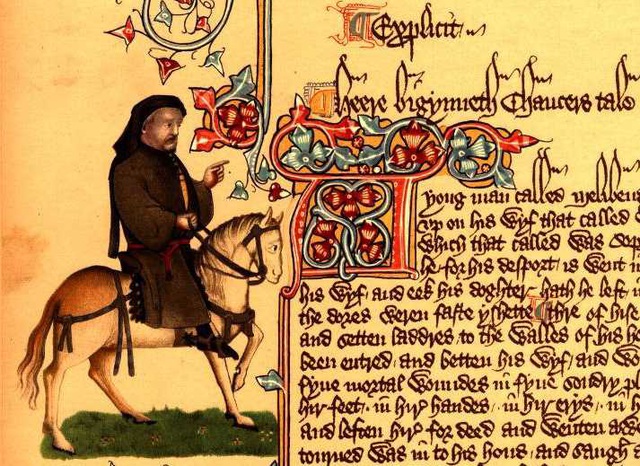 Explicit
Heere bigynneth Chaucers tale
A yong man called Melibeu
up on his wyf that called
Which that called was Sop
he for his desport is went in
his wyf / and eek his doghter / hath he left in
the dores weren faste yshette / Thre of hise
and setten laddres / to the walles of his h
been entred / and betten his wyf / and wo
fyue mortal woundes in fyue sondry p
hir feet / in hir handes / in hir erys / in h
and leften hir for deed and wenten awe
tourned was in to his hous / and saugh